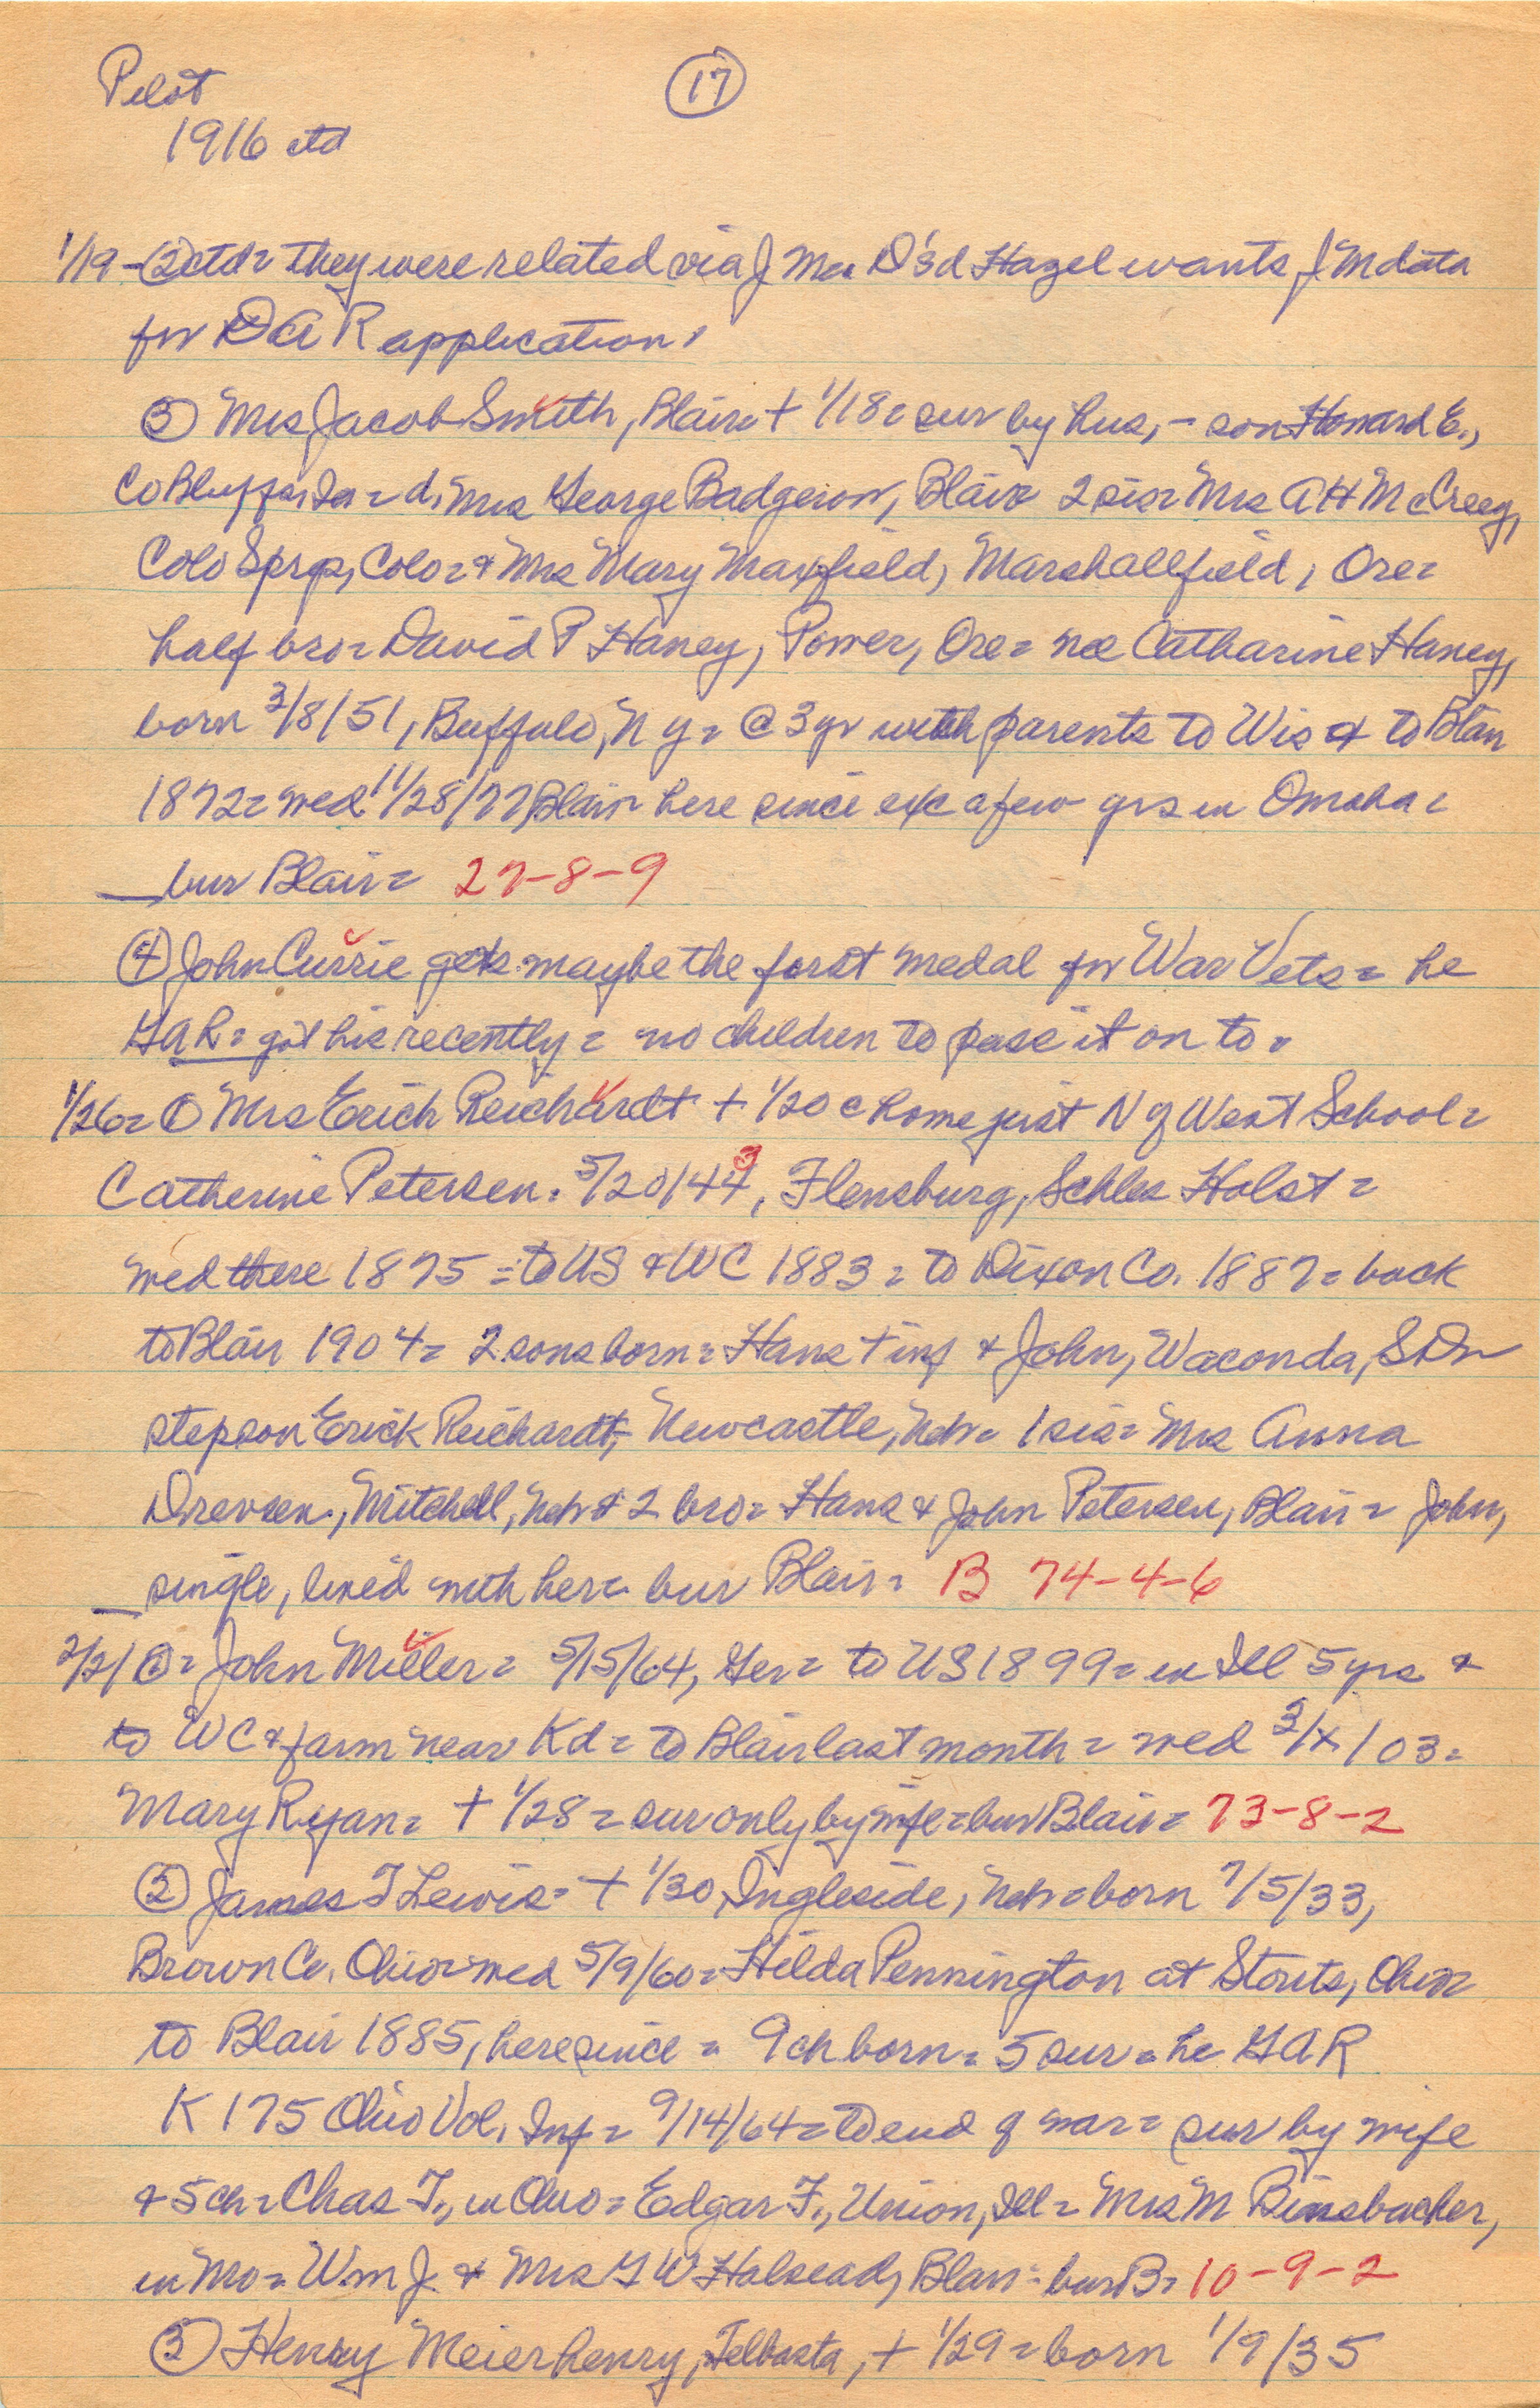 Pilot
17
1916 ctd
1/19 - (2) ctd = they were related via J Mc D's d Hazel wants J M data
for DAR application.
(3) Mrs Jacob Smith, Blair = + 1/18 = sur by hus, - son Howard E.,
Co Bluffs, Ia = d. Mrs George Badgerow, Blair = 2 sis = Mrs A H McCreey,
Colo Sprgs, Colo = & Mrs Mary Maxfield, Marshallfield, Ore =
half bro = David P Haney, Power, Ore = nee Catharine Haney,
born 3/8/51, Buffalo, N Y = @ 3 yr with parents to Wis & to Blair
1872 = wed 11/28/77, Blair = here since exc a few yrs in Omaha =
bur Blair = 27-8-9
(4) John Currie gets maybe the first medal for War Vets = he
GAR = got his recently = no children to pass it on to =
1/26 = (1) Mrs Erich Reichardt + 1/20 @ home just N of West School =
Catherine Petersen = 5/20/44 3, Flensburg, Schles Holst =
wed there 1875 = to US & WC 1883 = to Dixon Co. 1887 = back
to Blair 1904 = 2 sons born = Hans + inf & John, Waconda, S D =
stepson Erick Reichardt, Newcastle, Neb = 1 sis = Mrs Anna
Drevsen, Mitchell, Neb & 2 bro = Hans & John Petersen, Blair = John,
single, lived with her = bur Blair = B 74-4-6
2/2/ (1) = John Miller = 5/15/64, Ger = to US 1899 = in Ill 5 yrs &
to WC & farm near Kd = to Blair last month = wed 2/x/03 =
Mary Ryan = + 1/28 = sur only by wife = bur Blair = 73-8-2
(2) James T Lewis = + 1/30, Ingleside, Neb = born 7/5/33,
Brown Co. Ohio = wed 5/9/60 = Hilda Pennington at Stouts, Ohio =
to Blair 1885, here since = 9 ch born = 5 sur = he GAR
K 175 Ohio Vol. Inf = 9/14/64 = to end of war = sur by wife
& 5 ch = Chas T., in Ohio = Edgar F., Union, Ill = Mrs M Binsbacher,
in Mo = Wm J. & Mrs G W Halsead, Blair = bur B = 10-9-2
(3) Henry Meierhenry, Telbasta, + 1/29 = born 1/9/35